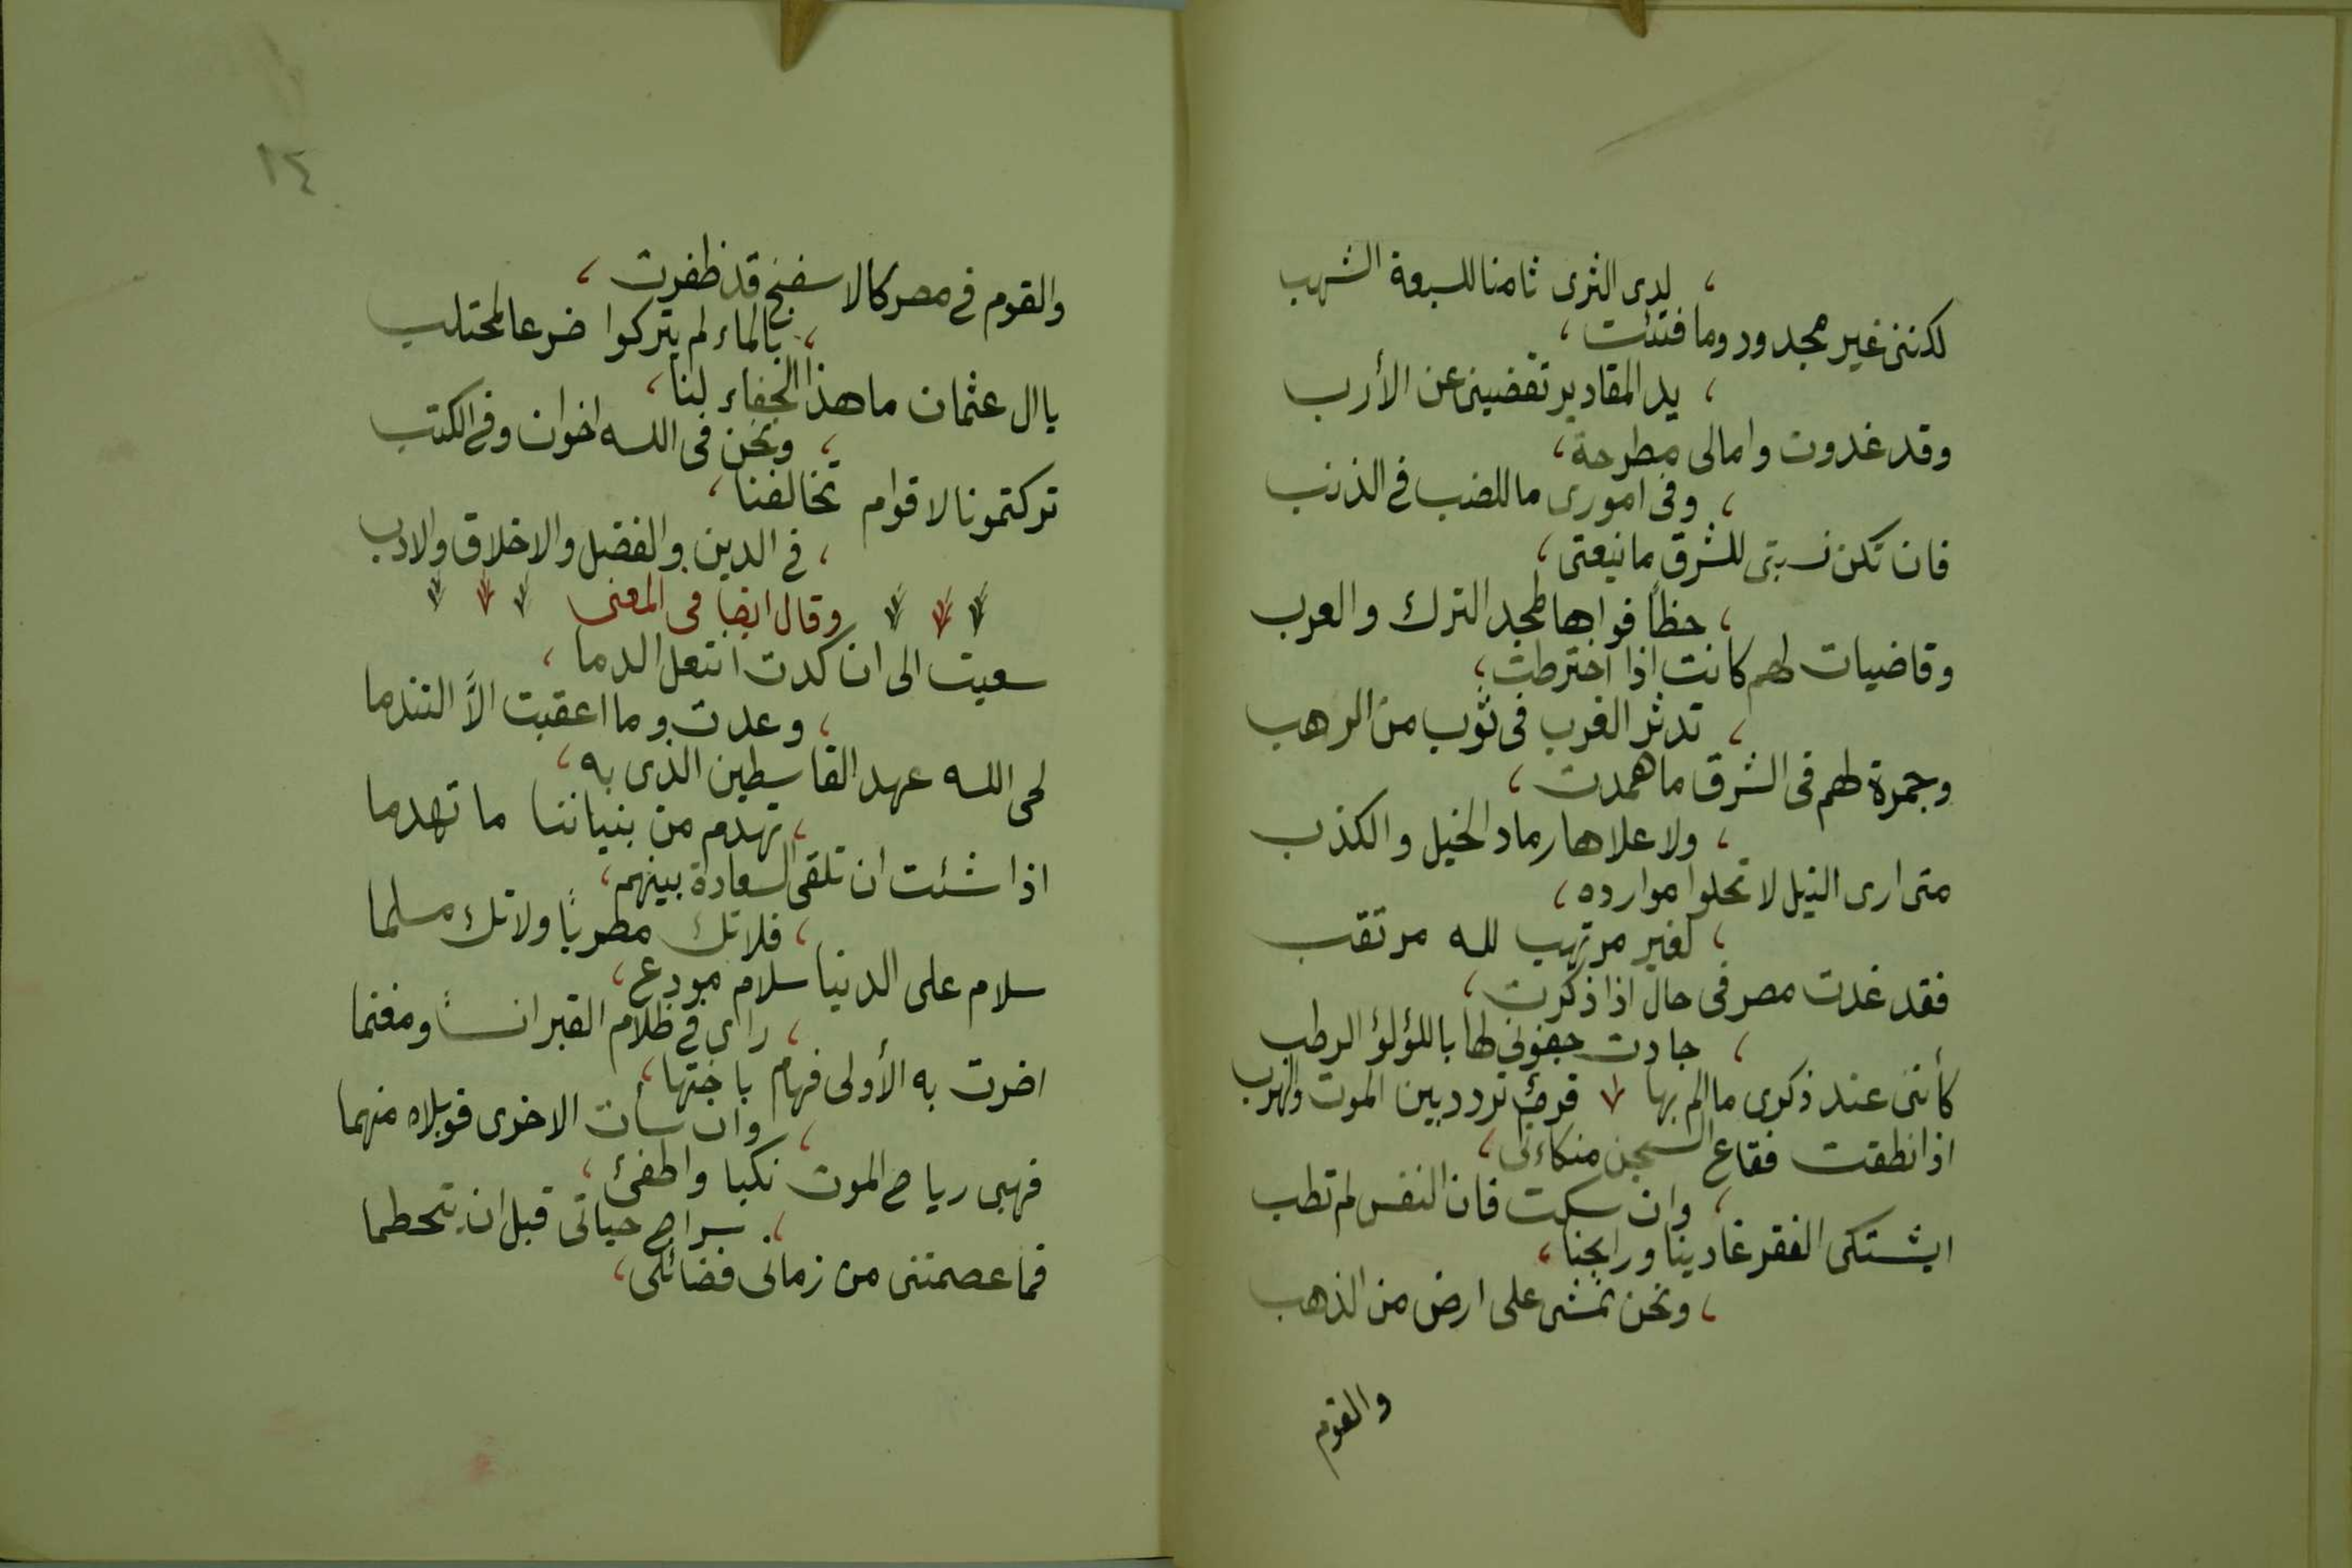 لدى الثرى ثامنا للسبعة الشهب
لكننى غير مجدود وما فتئت
يد المقادير تقضينى عن الأرب
وقد غدوت وامالى مطرحة
وفى امورى ما للضب فى الذنب
فان تكن نسبتى للشرق مانيعتى
حظاً فواها لمجد الترك والعرب
وقاضيات لهم كانت اذا اخترطت
تدثر الغرب فى ثوب من الرهب
وجمرة لهم فى الشرق ما همدت
ولا علاها رماد الخيل والكذب
متى ارى النيل لا تحلوا موارده
لغير مرتهب لله مرتقب
فقد غدت مصر فى حال اذا ذكرت
جادت جفونى لها باللؤلؤ الرطب
كأننى عند ذكرى ما الم بها قرم تردد بين الموت والهرب
اذا نطقت فقاع السجن متكاءلى
وان سكت فان النفس لم تطب
ايشتكى الفقر غادينا ورايحنا
ونحن نمشى على ارض من الذهب
والقوم
١٤
والقوم فى مصر كالاسفنج قد ظفرت
بالماء لم يتركوا ضرعا لمحتلب
يا ال عثمان ما هذا الجفاء لنا
ونحن فى الله اخوان وفى الكتب
تركتمونا لاقوام تخالفنا
فى الدين والفضل والاخلاق والادب
وقال ايضا فى المعنى
سعيت الى ان كدت انتعل الدما
وعدت وما اعقبت الاَّ التندما
لحى الله عهد القاسطين الذى به
تهدم من بنياننا ما تهدما
اذا شئت ان تلقى السعادة بينهم
فلاتك مطربًا ولاتك مسلما
سلام على الدنيا سلام مودع
راى فى ظلام القبر انساً ومغنما
اضرت به الأولى فهام باختها
وان سات الاخرى فويلاه منهما
فهبى رياح الموت نكبا واطفئ
سراج حياتى قبل ان يتحطما
فما عصمتنى من زمانى فضائلى